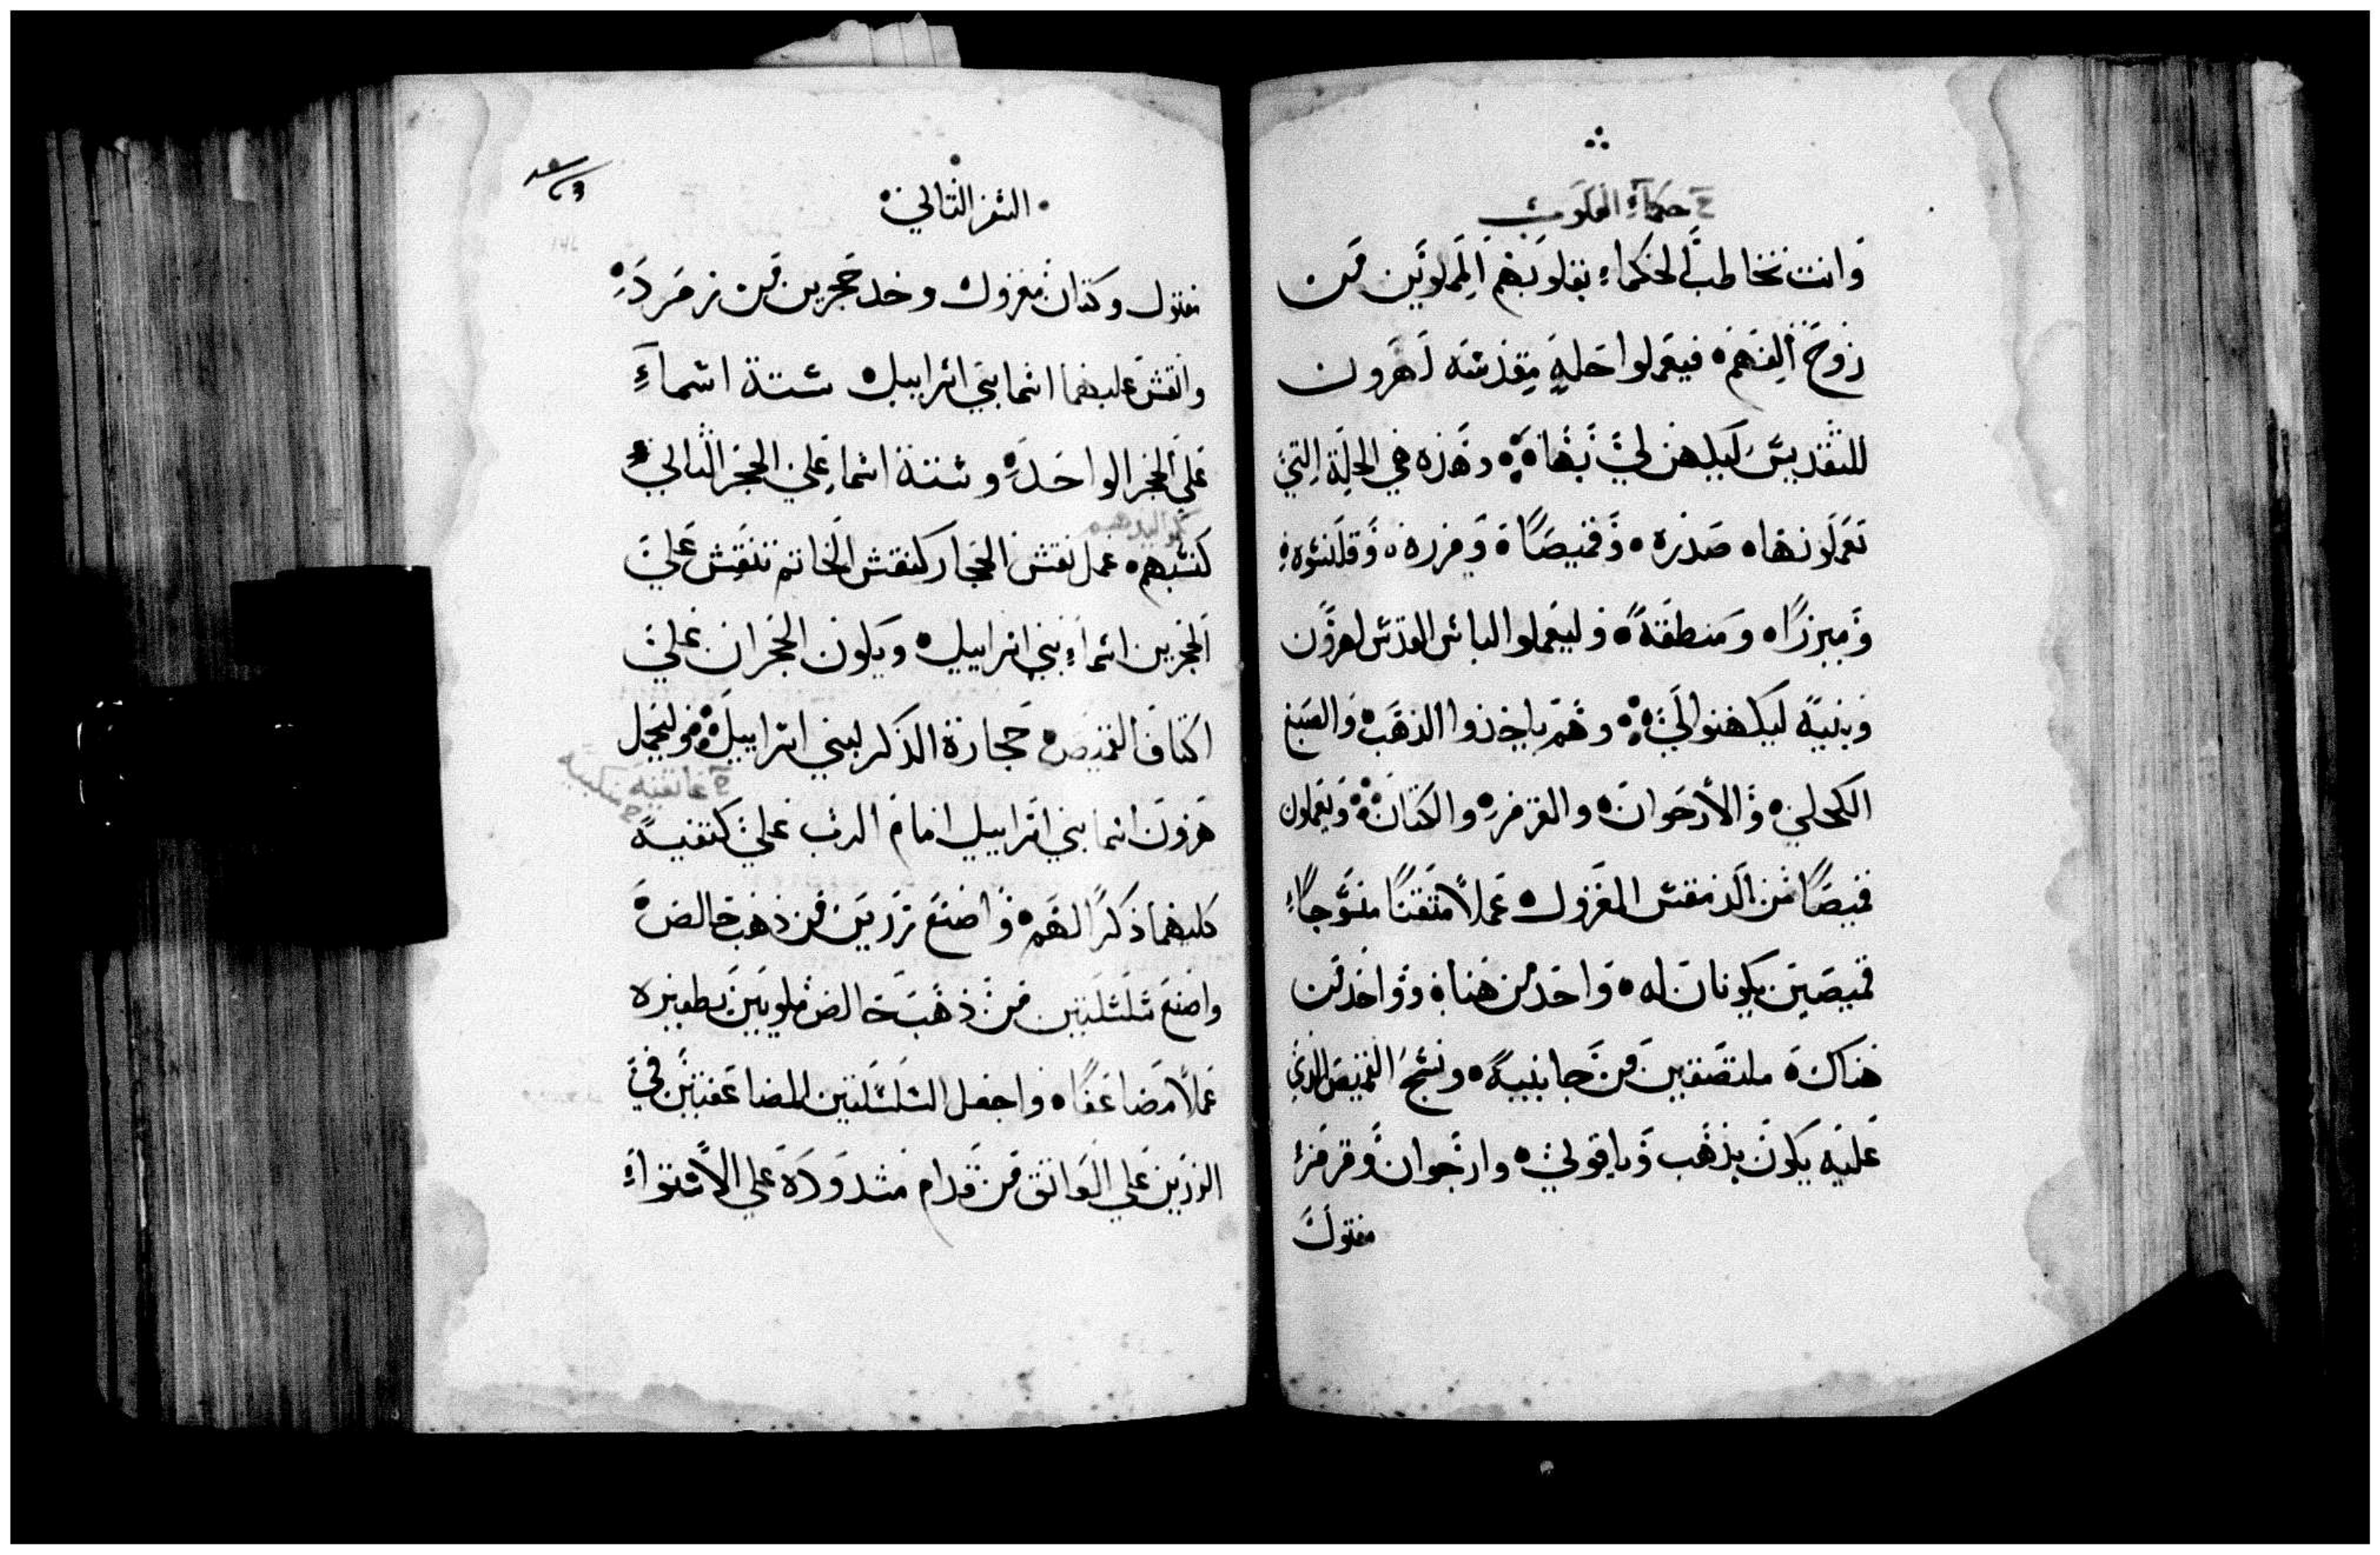 حكماء القلوب
وانت تخاطب الحكماء بقلوبهم المملوين من
روح الفهم فيعملوا حلة مقدسة لهرون
للتقديس ليكهن لي بها وهذه هي الحلة التي
تعملونها صدره وقميصا ومزره وقلنسوه
وميزرا ومنطقة وليعملوا الباس القدس لهرون
وبنيه ليكهنوا لي وهم ياخذوا الذهب والصبغ
الكحلي والارجوان والقرمز والكتان ويعملون
قميصا من الدمقس المغزول عملا متقنا منسوجا
قميصين يكونان له واحد من هنا وواحد من
هناك ملتصقين من جانبيه ونسج القميص الذي
عليه يكون بذهب وياقولي وارجوان وقرمز
مفتول
السفر الثاني
مفتول وكتان مغزول وخد حجرين من زمرد
وانقش عليهما اسما بني اسراييل ستة اسماء
علي الحجر الواحد وستة اسماء علي الحجر الثاني
كنسبهم عمل نقش الحجار كنقش الخاتم تنقش علي
الحجرين اسماء بني اسراييل ويكون الحجران علي
اكتاف القميص حجارة الذكر لبني اسراييل وليحمل
عاتقيه منكبيه
هرون اسما بني اسراييل امام الرب علي كتفيه
كليهما ذكرا لهم واصنع زرين من ذهب خالص
واصنع سلسلتين من ذهب خالص ملويين بطفيره
عملا مضاعفا واجعل السلسلتين المضاعفتين في
الزرين علي العواتق من قدام مشدوده علي الاستواء